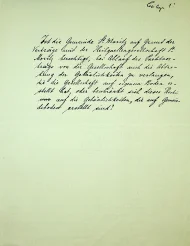 Ist die Gemeinde St. Moritz auf Grund der
Verträge mit der Heilquellengesellschaft St.
Moritz berechtigt, bei Ablauf des
von der Gesellschaft auch die
der Gebäulichkeiten zu verlangen,
die die Gesellschaft auf eigenem Boden er-
stellt hat, oder beschränkt sich dieses Recht
nur auf die Gebäulichkeiten, die auf Gemein-
deboden erstellt sind?